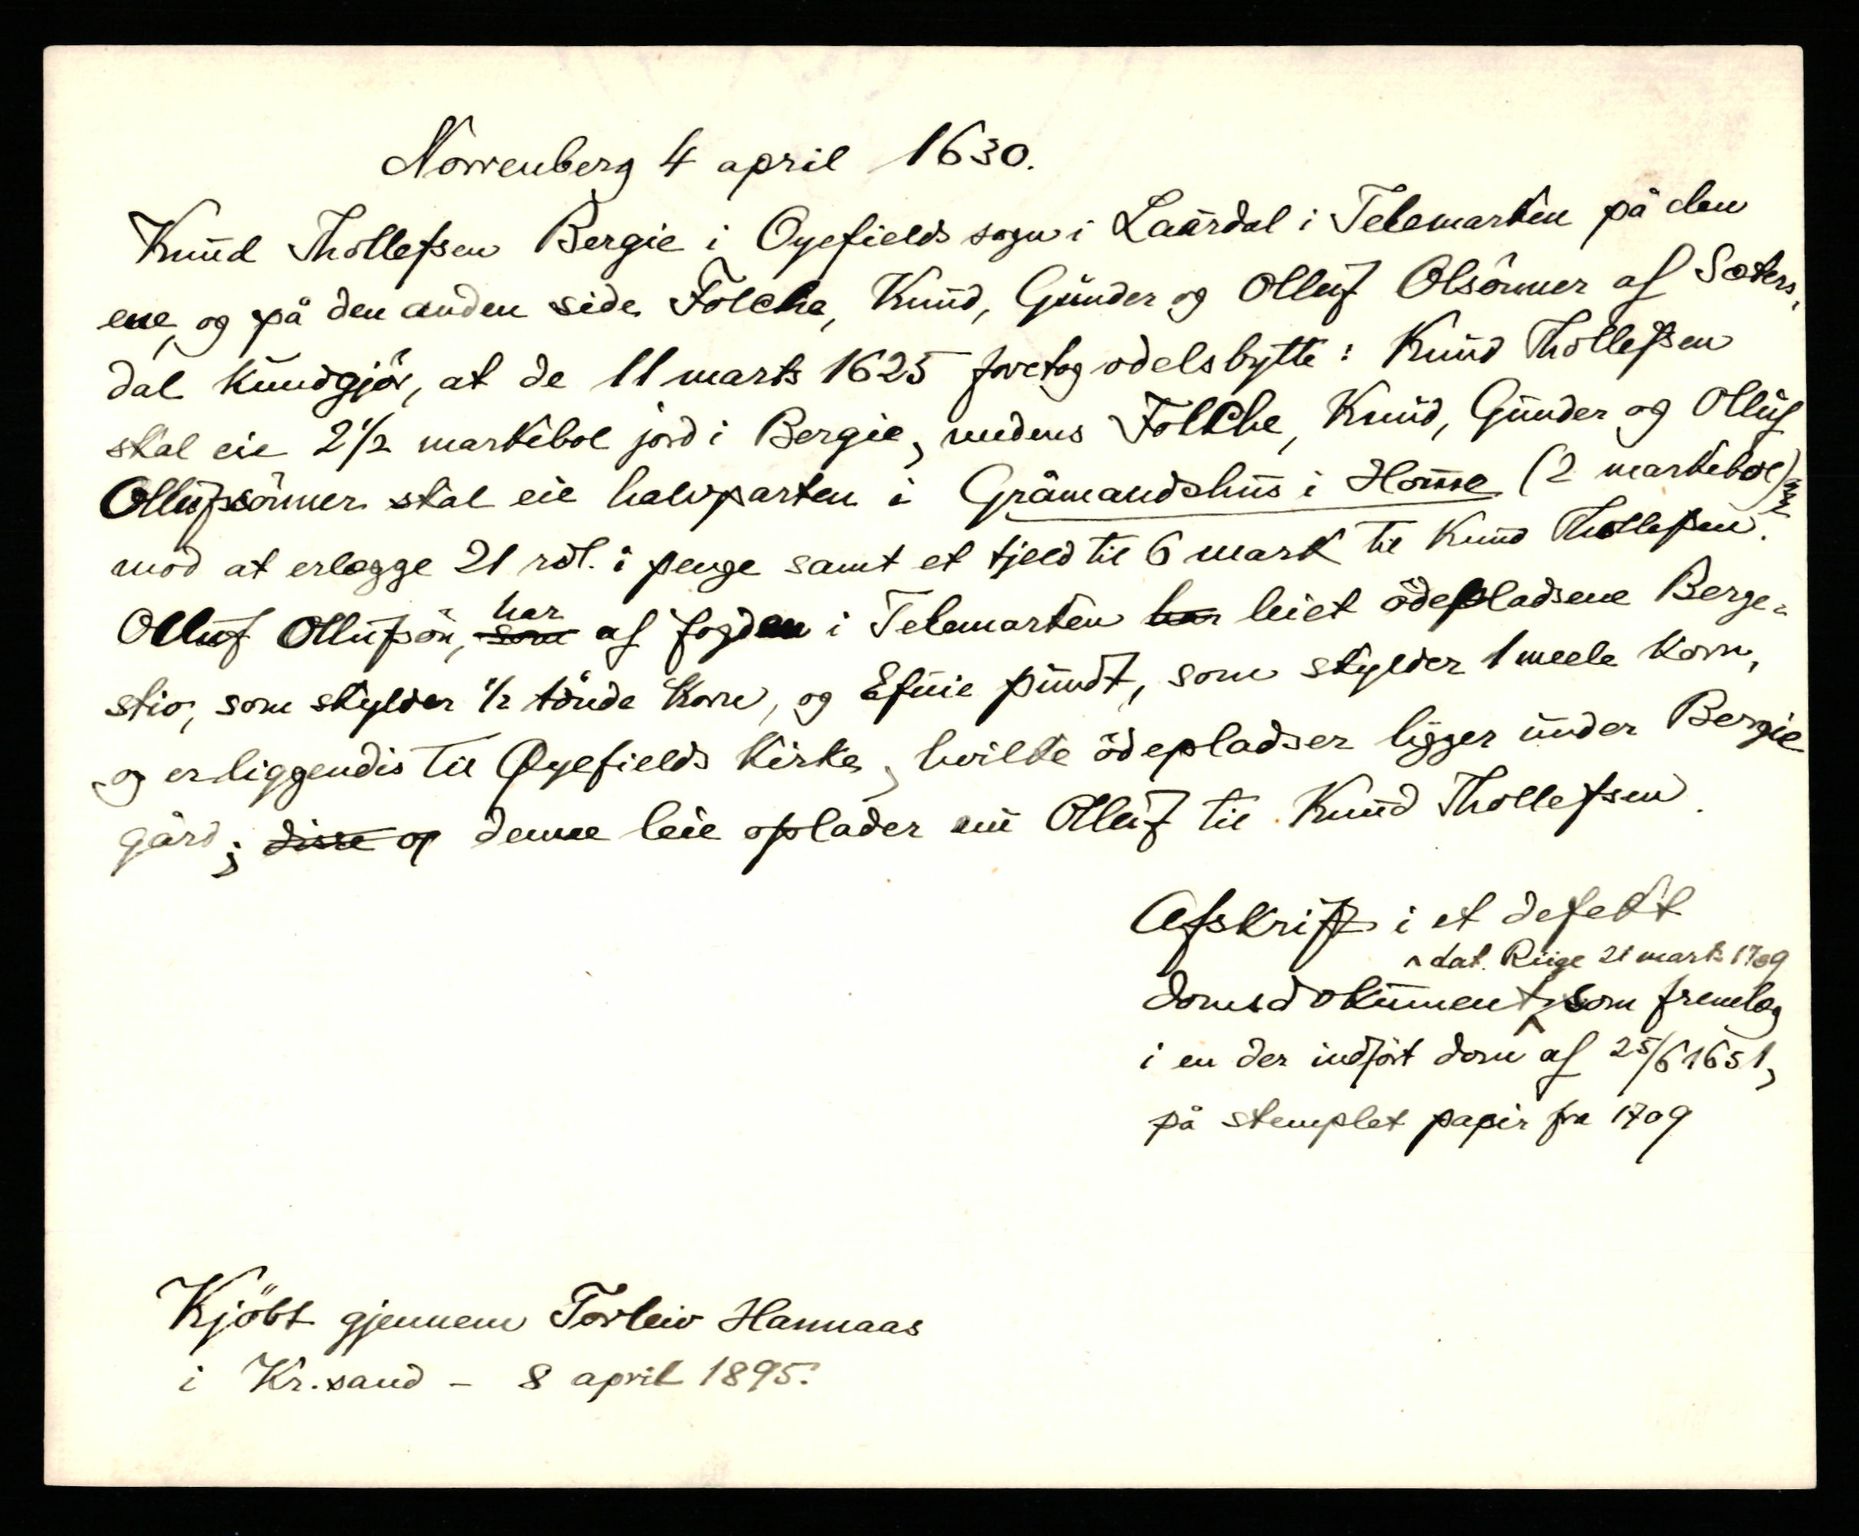 Norrenberg 4 april 1630.
Knud Thollefsen Bergie i Oyefields sogn i Laurdal i Telemarken på den
ene, og på den anden side Folche, Knud, Gunder og Olluf Olsönner af Sæters-
dal kundgjör, at de 11 marts 1625 foretog odelsbytte: Knud Thollefsen
skal eie 2½ markebol jord i Bergie, medens Folche, Knud, Gunder og Olluf
Ollufsönner skal eie halvparten i Gråmandshus i Home (2 markebol)
mod at erlægge 21 rdl. i penge samt et tjeld til 6 mark til Knud Thollefsen.
Olluf Ollufsön, som har af fogden i Telemarken har leiet ödepladsene Berge-
stio, som skylder ½ tönde korn, og Efuie pundt, som skylder 1 meele korn,
og er liggendis til Øyefields kirke, hvilke ödepladser ligger under Bergie
gård; disse op denne leie oplader nu Olluf til Knud Thollefsen.
Afskrift i et defekt
dat. Riige 21 marts 1709
domsdokument, som fremlag
i en der indfört dom af 25/6 1651,
på stemplet papir fra 1709
Kjöbt gjennem Torleiv Hannaas
i Kr.sand - 8 april 1895.